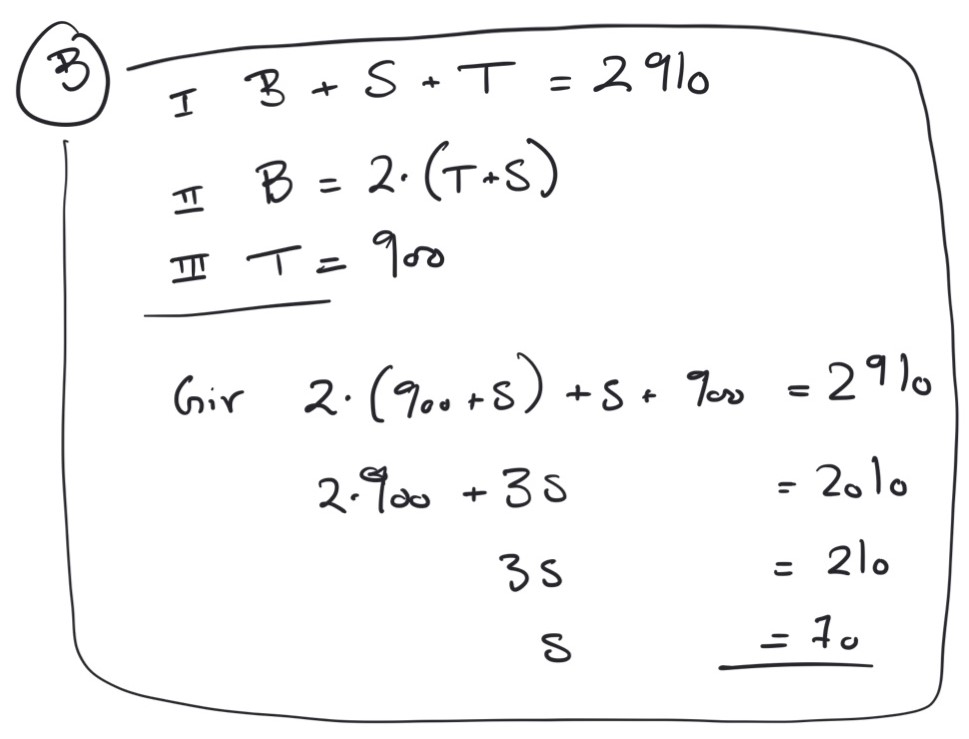 B
I B + S + T = 2910
II B = 2·(T+S)
III T = 900
Gir 2·(900+S) + S + 900 = 2910
2·900 + 3S = 2010
3S = 210
S = 70